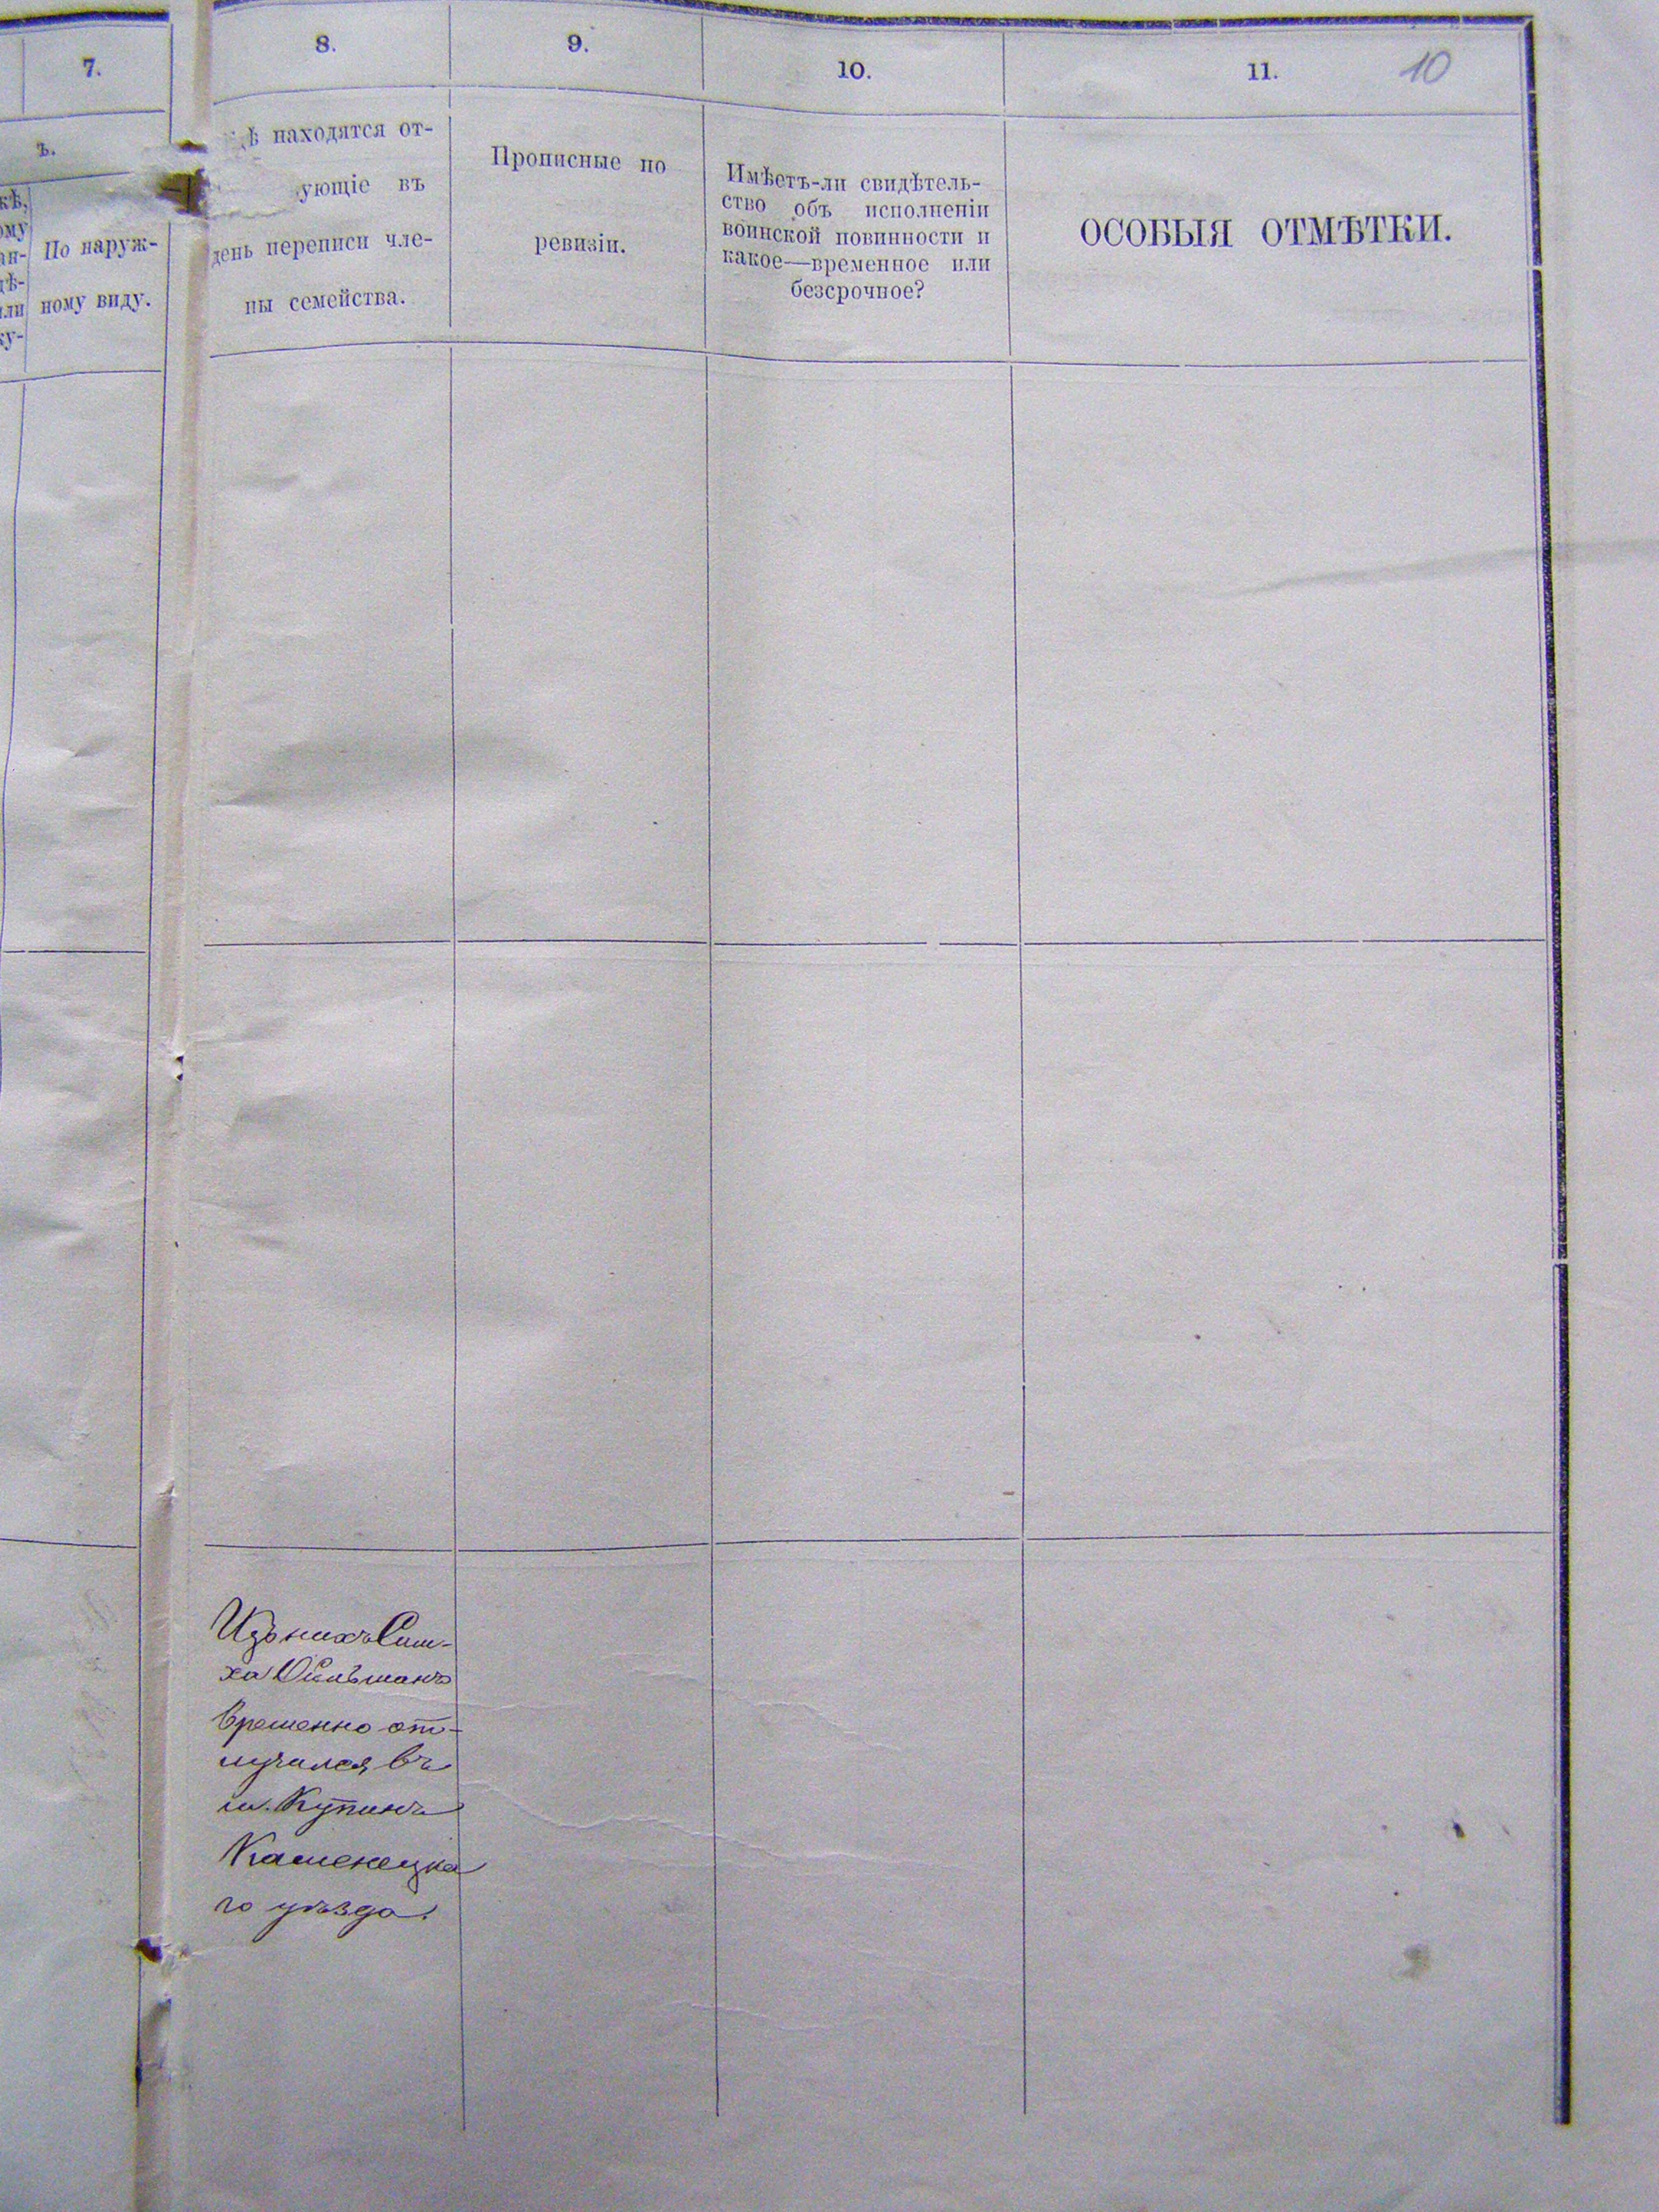 7.
ъ.
кѣ,
ому
ан-
дѣ-
или
ку-
По наруж-
ному виду.
8.
ѣ находятся от-
ующіе въ
день переписи чле-
ны семейства.
9.
Прописные по
ревизіи.
10.
Имѣетъ-ли свидѣтель-
ство объ исполненіи
воинской повинности и
какое—временное или
безсрочное?
11.
10
ОСОБЫЯ ОТМѢТКИ.
Изъ нихъ Сим-
ха
временно от-
лучился въ
м. Купинъ
Каменецка
го уѣзда.